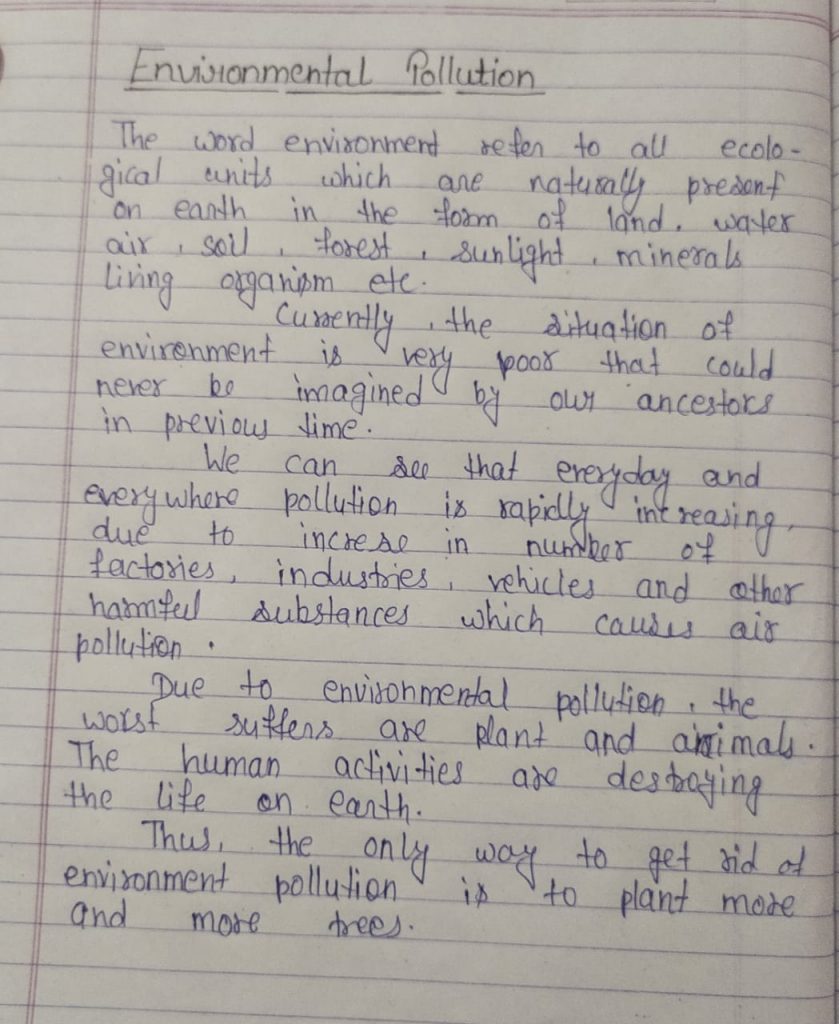 Environmental Pollution
The word environment refer to all ecolo-
gical units which are naturally present
on earth in the form of land, water
air, soil, forest, sunlight, minerals
living organism etc.
Currently, the situation of
environment is very poor that could
never be imagined by our ancestors
in previous time.
We can see that everyday and
everywhere pollution is rapidly increasing,
due to increse in number of
factories, industries, vehicles and other
harmful substances which causes air
pollution.
Due to environmental pollution, the
worst suffers are plant and animals.
The human activities are destroying
the life on earth.
Thus, the only way to get rid of
environment pollution is to plant more
and more trees.